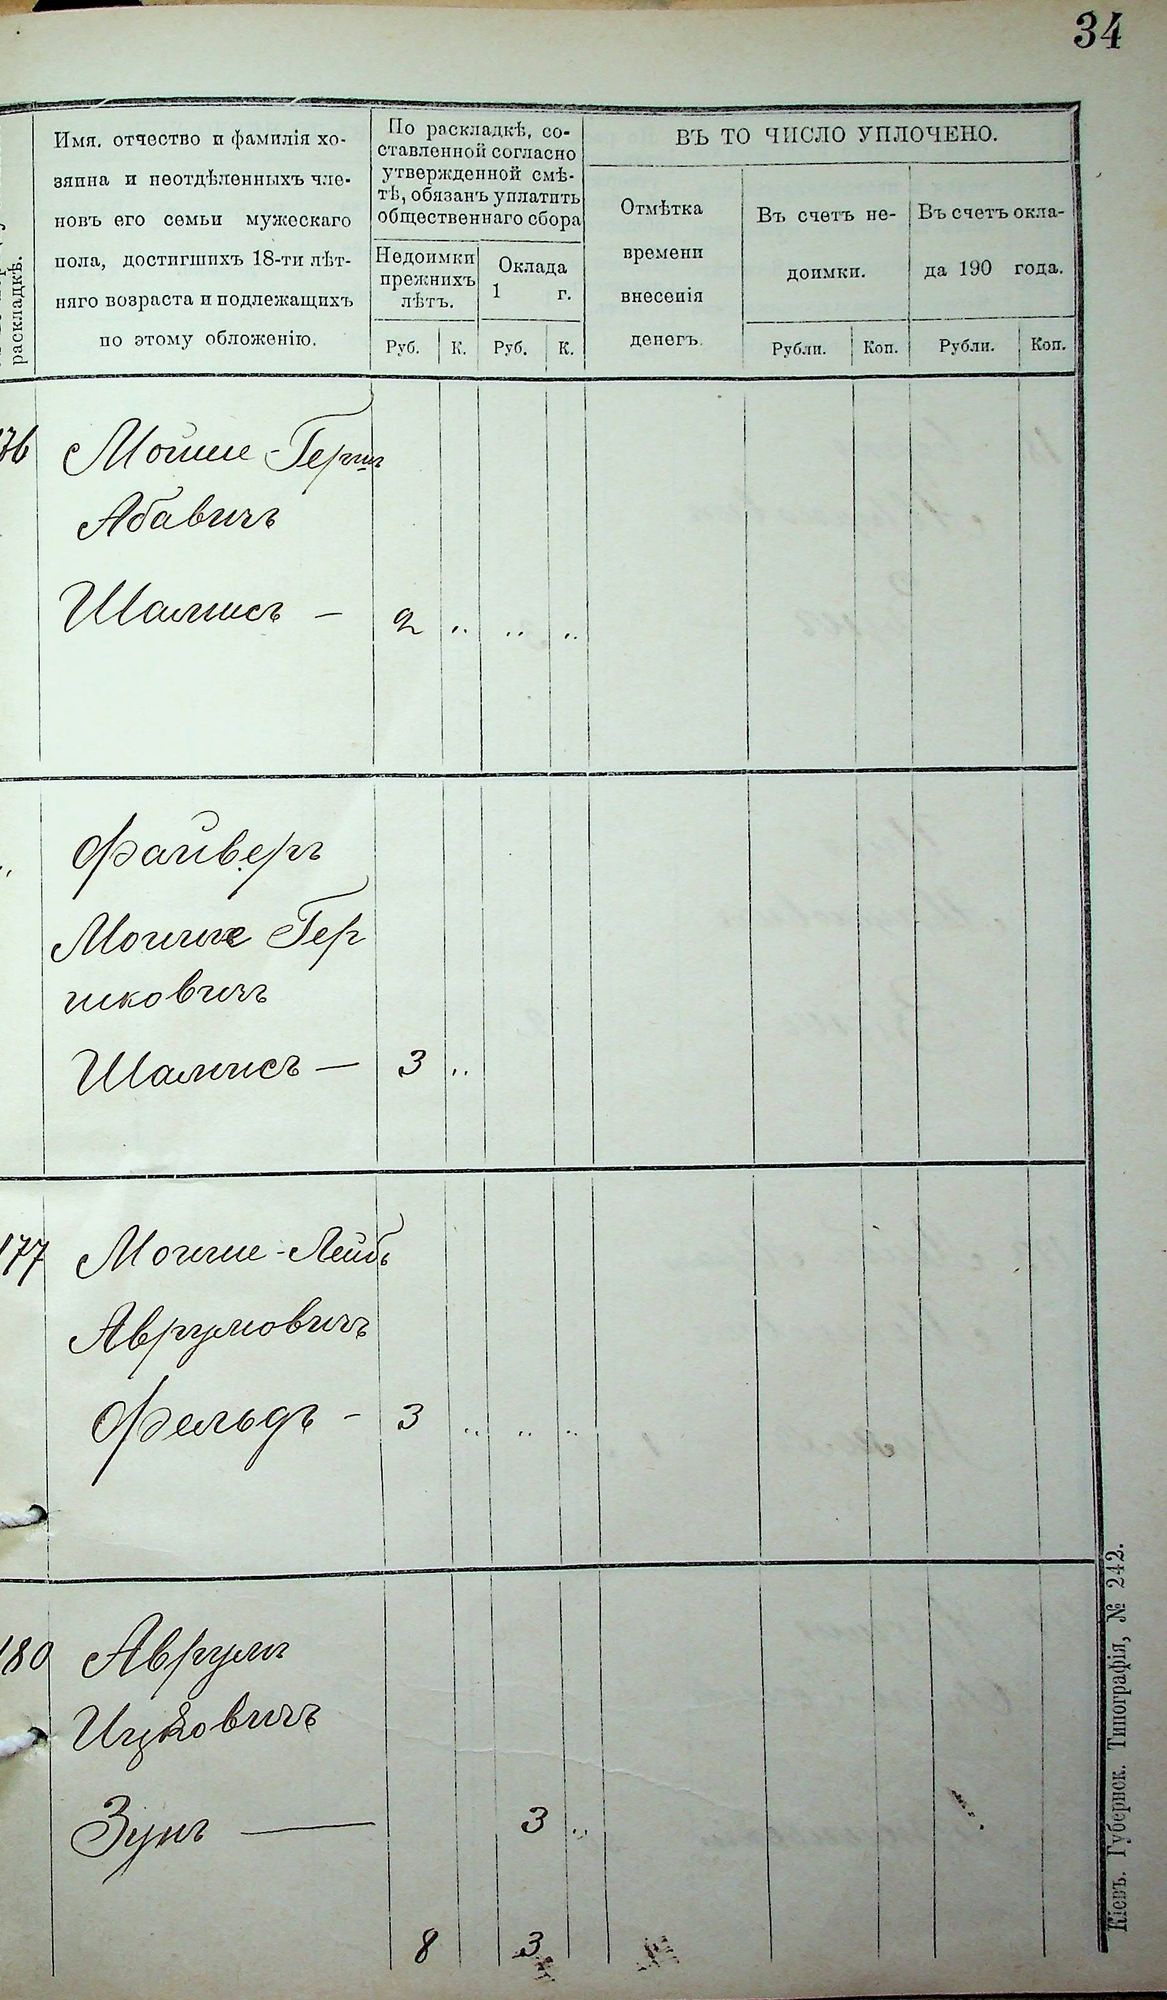 34
раскладкѣ.
Имя, отчество и фамилія хо-
зяина и неотдѣленныхъ чле-
новъ его семьи мужескаго
пола, достигшихъ 18-ти лѣт-
няго возраста и подлежащихъ
по этому обложенію.
По раскладкѣ, со-
ставленной согласно
утвержденной смѣ-
тѣ, обязанъ уплатить
общественнаго сбора
Недоимки
прежнихъ
лѣтъ.
Оклада
1 г.
Руб. К. Руб. К.
ВЪ ТО ЧИСЛО УПЛОЧЕНО.
Отмѣтка
времени
внесенія
денегъ.
Въ счетъ не-
доимки.
Въ счетъ окла-
да 190 года.
Рубли. Коп. Рубли. Коп.
176 Мойше-Герш
Абавичъ
Шамисъ — 2 „ „ „
„ Файвель
Мошке Гер
шковичъ
Шамисъ — 3 „
177 Мошше-Лейбъ
Аврумовичъ
Фельдъ - 3 „ „ „
180 Аврумъ
Ицковичъ
Зунъ — 3 „
8 3
Кіевъ. Губернск. Типографія, № 242.